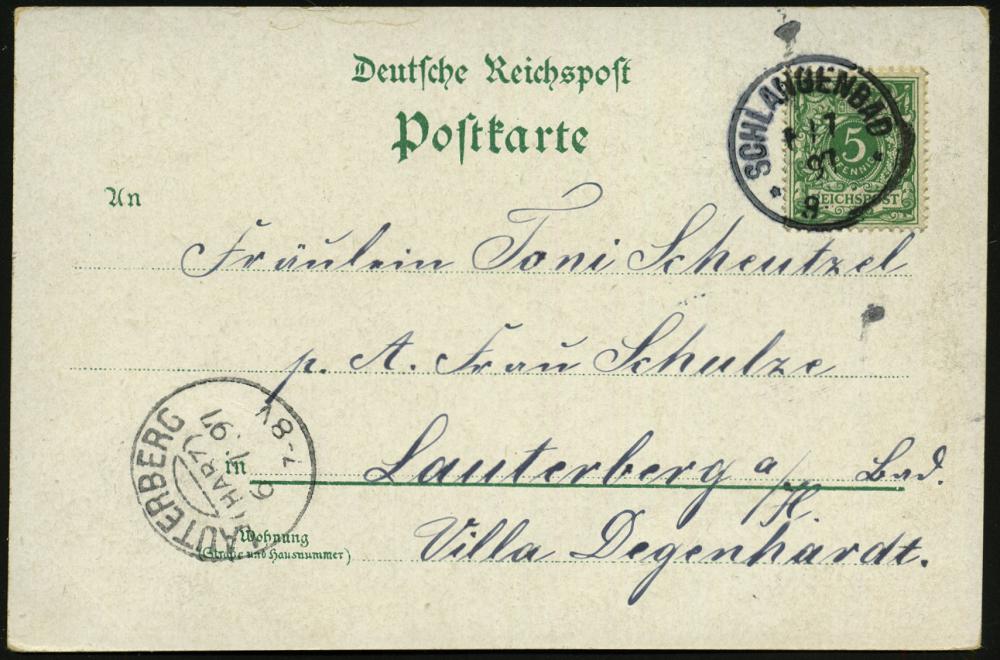 Deutsche Reichspost
Postkarte
SCHLANGENBAD
17
97
8-
5
PFENNIG
REICHSPOST
An
Fräulein Toni Scheutzel
p. A. Frau Schulze
in Lauterberg a/H. Bad.
Villa Degenhardt.
Wohnung
(Straße und Hausnummer)
LAUTERBERG
(HARZ)
6
97
7-8V